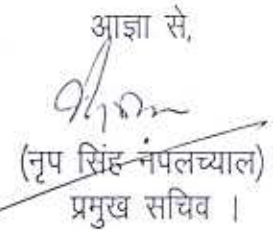 आज्ञा से,
(नृप सिंह नपलच्याल)
प्रमुख सचिव ।